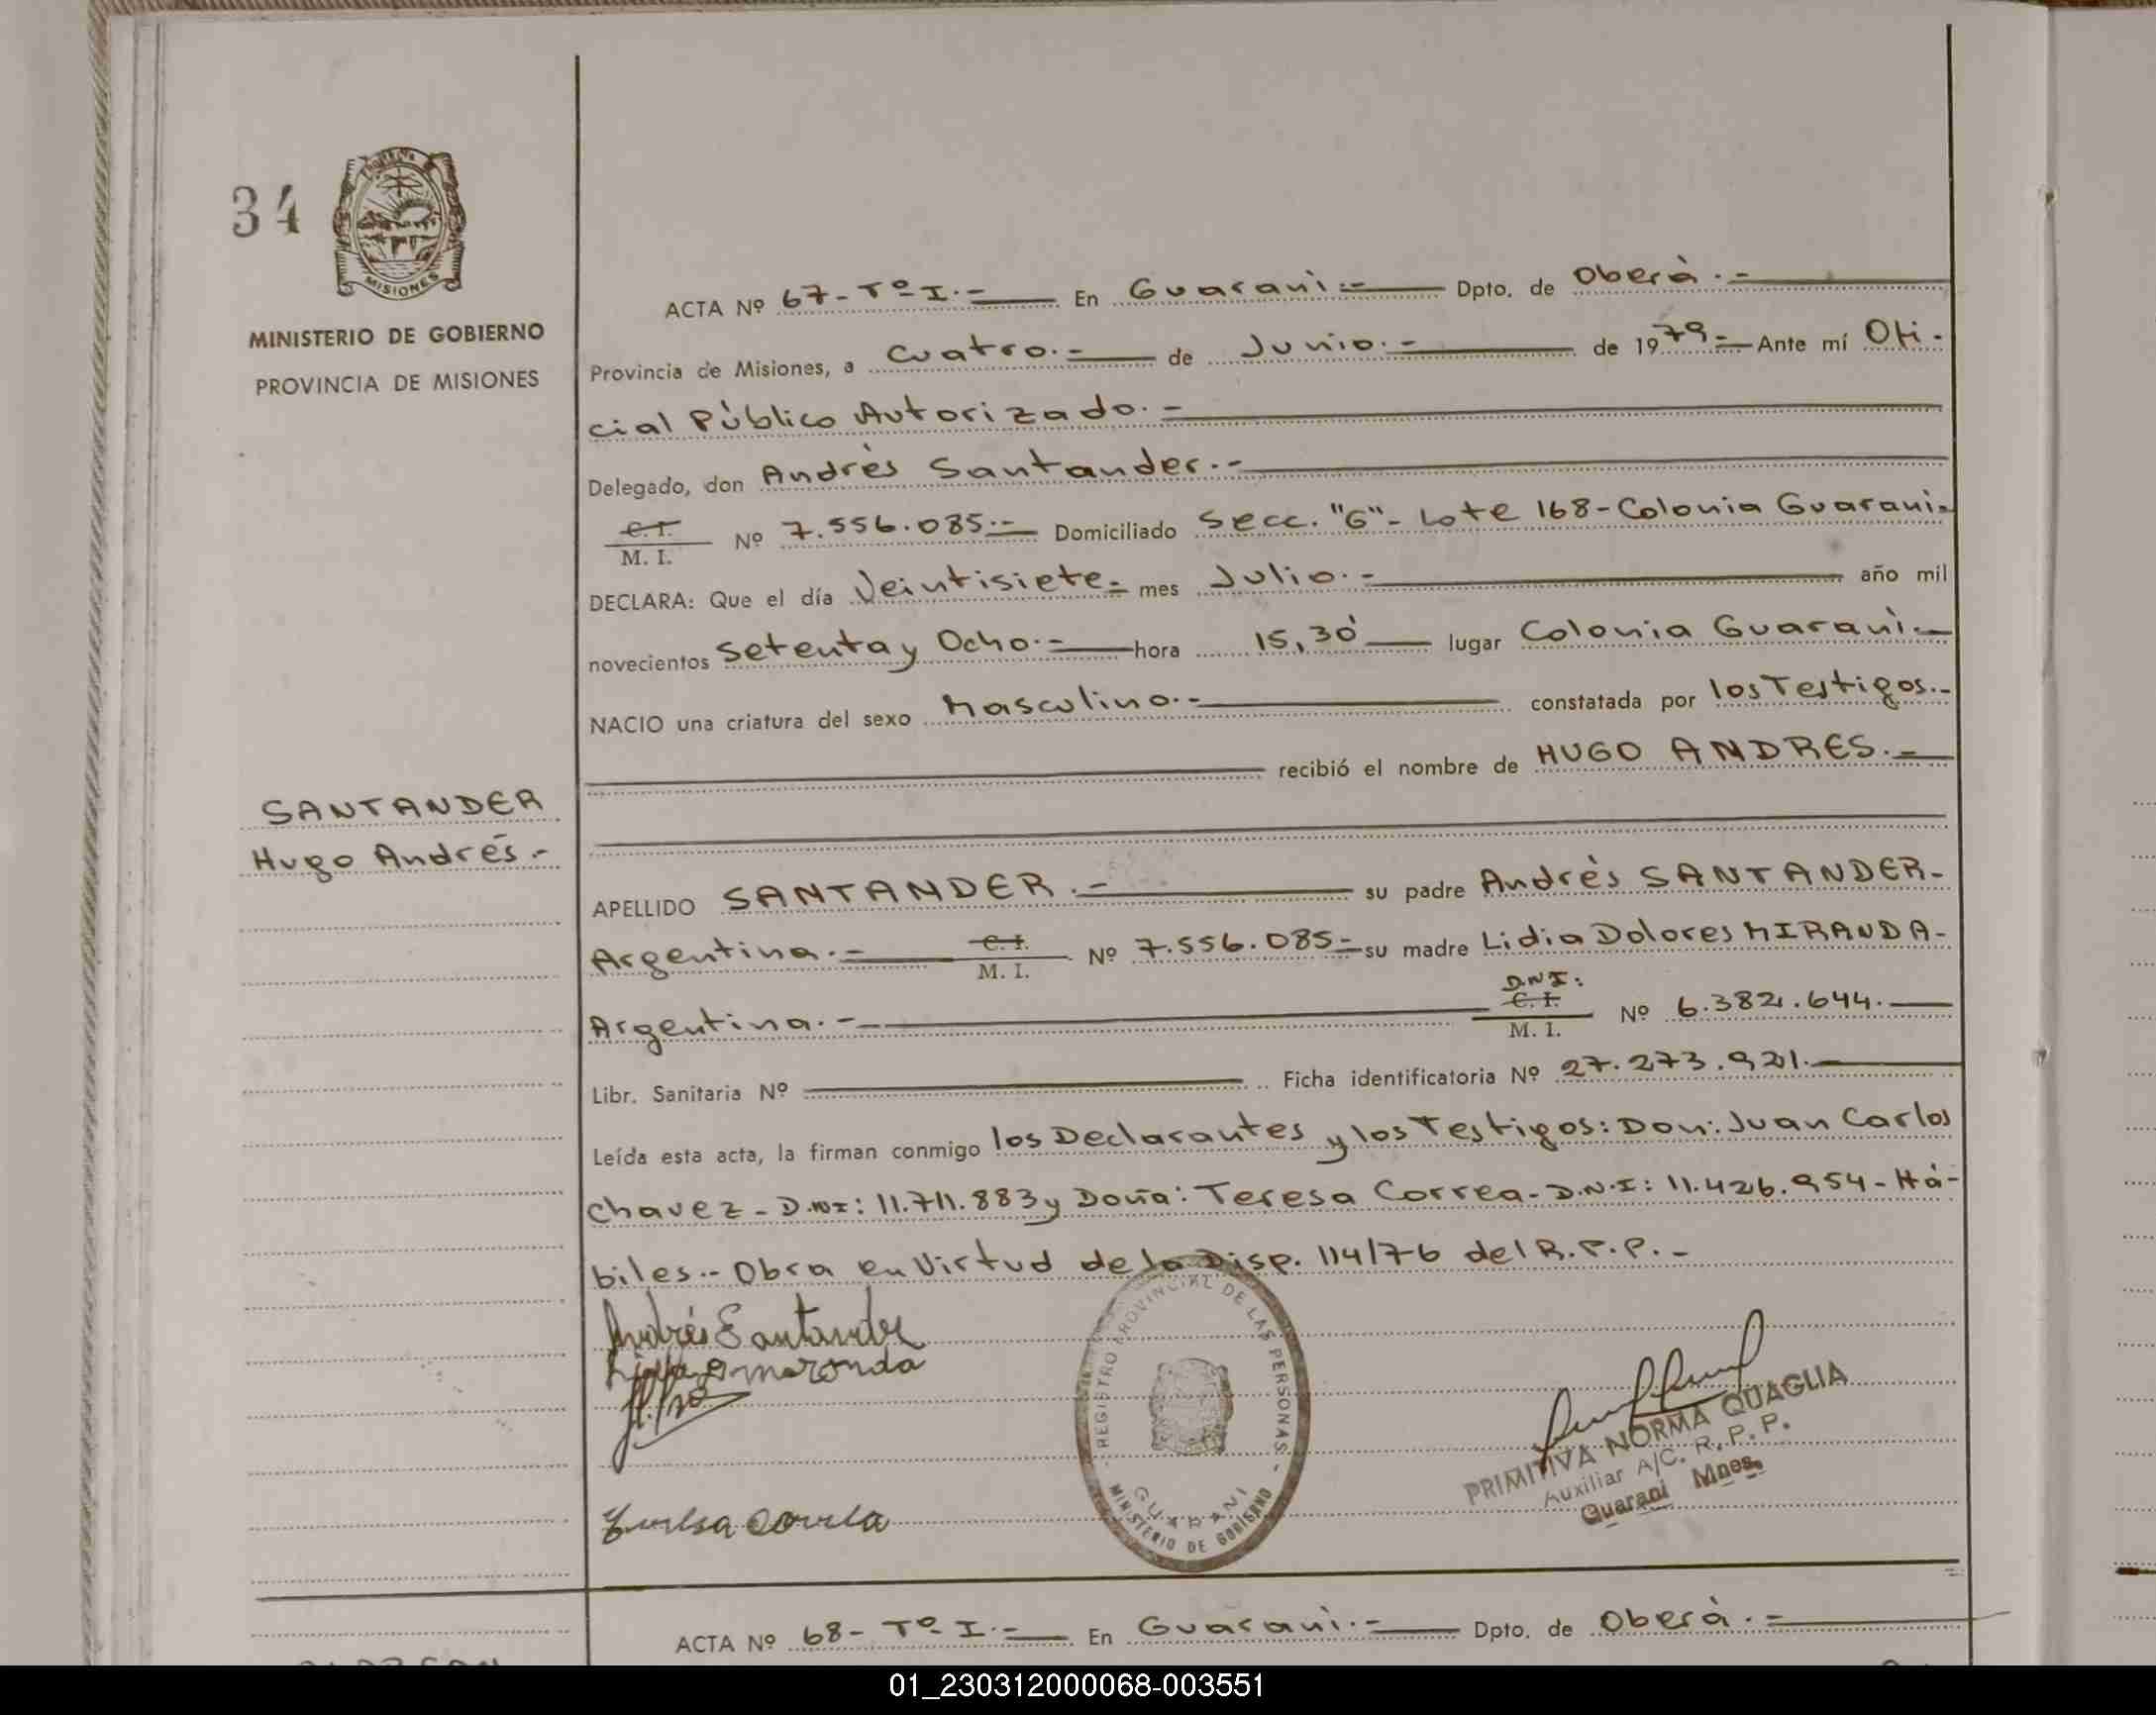 34
MISIONES
MINISTERIO DE GOBIERNO
PROVINCIA DE MISIONES
SANTANDER
Hugo Andrés.-
ACTA Nº 67-Tº I.- En Guaraní.- Dpto. de Oberá.-
Provincia de Misiones, a Cuatro.- de Junio.- de 1979.- Ante mí Ofi-
cial Público Autorizado.-
Delegado, don Andrés Santander.-
C. I.
M. I. Nº 7.556.085.- Domiciliado Secc. "G"- Lote 168-Colonia Guaraní-
DECLARA: Que el día Veintisiete- mes Julio.- año mil
novecientos Setenta y Ocho.- hora 15,30 lugar Colonia Guaraní.-
NACIO una criatura del sexo Masculino.- constatada por los Testigos.-
recibió el nombre de HUGO ANDRES.-
APELLIDO SANTANDER.- su padre Andrés SANTANDER-
Argentina.- C. I. M. I. Nº 7.556.085- su madre Lidia Dolores MIRANDA-
Argentina.- D.N.I: C. I. M. I. Nº 6.382.644.-
Libr. Sanitaria Nº Ficha identificatoria Nº 27.273.921.-
Leída esta acta, la firman conmigo los Declarantes y los Testigos: Don: Juan Carlos
Chavez - D.NI: 11.711.883 y Doña: Teresa Correa- D.N.I: 11.426.954 - Há-
biles.- Obra en Virtud de la Disp. 114/76 del R.P.P.-
Andrés Santander
REGISTRO PROVINCIAL DE LAS PERSONAS
GUARANI
MINISTERIO DE GOBIERNO
PRIMITIVA NORMA QUAGLIA
Auxiliar A/C. R.P.P.
Guaraní Mnes.
ACTA Nº 68- Tº I.- En Guaraní.- Dpto. de Oberá.-
01_230312000068-003551